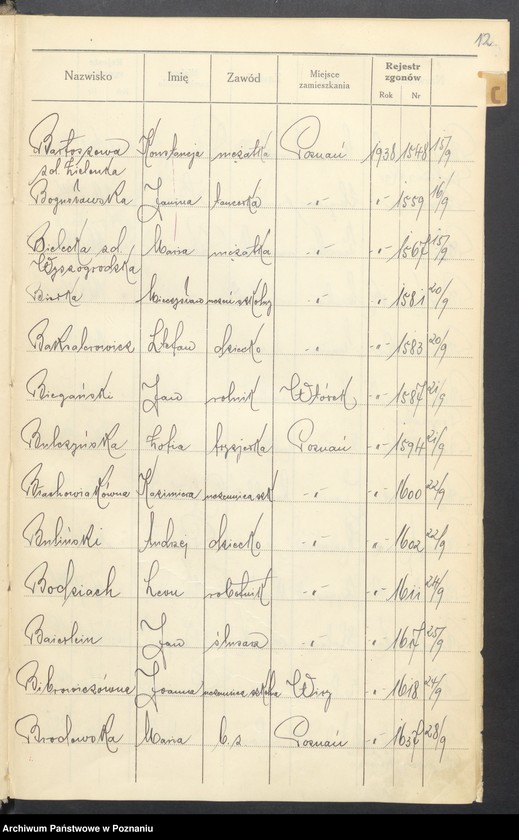 12
Nazwisko Imię Zawód Miejsce zamieszkania Rejestr zgonów
Rok Nr
C
Bartoszewa Konstancja mężatka Poznań 1938 1548 15/9
zd. Zielenka
Bogusławska Janina tancerka -"- -"- 1559 16/9
Bielecka zd. Maria mężatka -"- -"- 1567 15/9
Wyszogrodzka
Bierka Mieczysław uczeń szkolny -"- -"- 1581 20/9
Stefan dziecko -"- -"- 1583 20/9
Biegański Jan rolnik Wiórek -"- 1587 21/9
Bulczyńska Zofia fryzjerka Poznań -"- 1594 21/9
Błachowiakówna Kazimiera uczennica szk -"- -"- 1600 22/9
Buliński Andrzej dziecko -"- " 1602 22/9
Bodziach Leon robotnik -"- -"- 1611 24/9
Baierlein Jan ślusarz -"- -"- 1617 25/9
Bibrowiczówna Joanna uczennica szkolna Wiry " 1618 24/9
Brodowska Maria b.z. Poznań " 1637 28/9
Archiwum Państwowe w Poznaniu